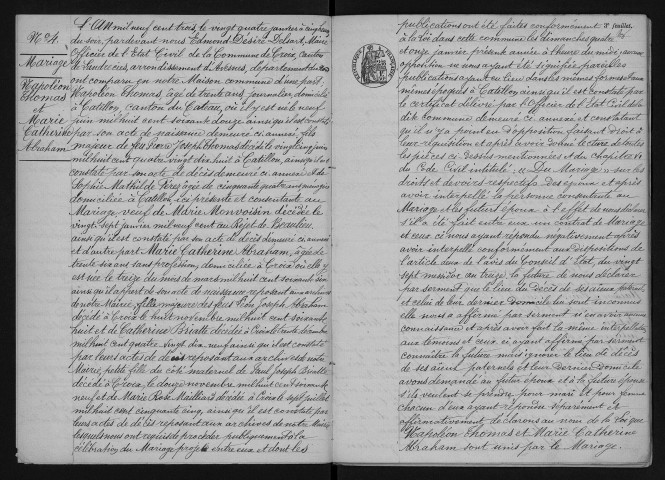 N° 4.
Mariage
Napoléon
Thomas
et
Marie
Catherine
Abraham
L'An mil neuf cent trois, le vingt quatre janvier à cinq heures
du soir, pardevant nous Edmond Désiré Delsart, Maire
Officier de l'Etat Civil de la Commune de Croix, canton
de Landrecies, arrondissement d'Avesnes, département du Nord
ont comparu en notre Maison commune d'une part
Napoléon Thomas, âgé de trente ans, journalier, domicilié
à Catillon, canton du Cateau, où il est né le neuf
juin mil huit cent soixante douze ainsi qu'il est constaté
par son acte de naissance demeuré ci annexé, fils
majeur de feu Pierre Joseph Thomas décédé le vingt cinq juin
mil huit cent quatre vingt dix huit à Catillon, ainsi qu'il est
constaté par son acte de décès demeuré ci annexé et de
Sophie Mathilde Pérez âgée de cinquante quatre ans
domiciliée à Catillon, ici présente et consentante au
Mariage veuf de Marie Monvoisin décédée le
vingt sept janvier mil neuf cent au Rejet de Beaulieu
ainsi qu'il est constaté par son acte de décès demeuré ci annexé
et d'autre part Marie Catherine Abraham, âgée de
trente six ans sans profession, domiciliée à Croix où elle y
est née le treize du mois de mars mil huit cent soixante six
ainsi qu'il appert de son acte de naissance reposant aux archives
de notre Mairie, fille majeure des feus Joseph Abraham
décédé à Croix le huit novembre mil huit cent soixante
huit et de Catherine Briatte décédée à Croix le trente décembre
mil huit cent quatre vingt dix neuf ainsi qu'il est constaté
par leurs actes de décès reposant aux archives de notre
Mairie, petite fille du côté maternel de Paul Joseph Briatte
décédé à Croix, le douze novembre mil huit cent soixante
neuf et de Marie Rose Mailliard décédée à Croix le sept juillet
mil huit cent cinquante cinq, ainsi qu'il est constaté par
leurs actes de décès reposant aux archives de notre Mairie
lesquels nous ont requis de procéder publiquement à la
célébration du Mariage projeté entre eux et dont les
2e feuillet.
publications ont été faites conformément
à la loi dans cette commune les dimanches quatre
et onze janvier présent année à l'heure de midi, aucune
opposition ne nous ayant été signifiée pareilles
publications ayant eu lieu dans les mêmes formes et aux
mêmes époques à Catillon, ainsi qu'il est constaté par
le certificat délivré par l'Officier de l'Etat Civil de la
dite commune demeuré ci annexé et constatant
qu'il n'y a point eu d'opposition faisant droit à
leur réquisition et après avoir donné lecture de toutes
les pièces ci-dessus mentionnées et du chapitre VI
du Code Civil intitulé: « Du Mariage » sur les
droits et devoirs respectifs des époux et après
avoir interpellé la personne consentante au
Mariage et les futurs époux à l'effet de nous déclarer
s'il a été fait entre eux un contrat de Mariage
et ceux ci nous ayant répondu négativement après
avoir interpellé conformément aux dispositions de
l'article deux de l'avis du Conseil d'Etat, du vingt
sept messidor an treize, la future de nous déclarer
par serment que le lieu du décès de ses aïeux paternels
et celui de leur dernier domicile lui sont inconnus
elle nous a affirmé par serment n'en avoir aucune
connaissance et après avoir fait la même interpellation
aux témoins et ceux ci ayant affirmé par serment
connaître la future mais ignorer le lieu du décès
de ses aïeux paternels et leur dernier domicile
avons demandé au futur époux et à la future épouse
s'ils veulent se prendre pour mari et pour femme
chacun d'eux ayant répondu séparément et
affirmativement déclarons au nom de la loi que
Napoléon Thomas et Marie Catherine
Abraham sont unis par le Mariage.